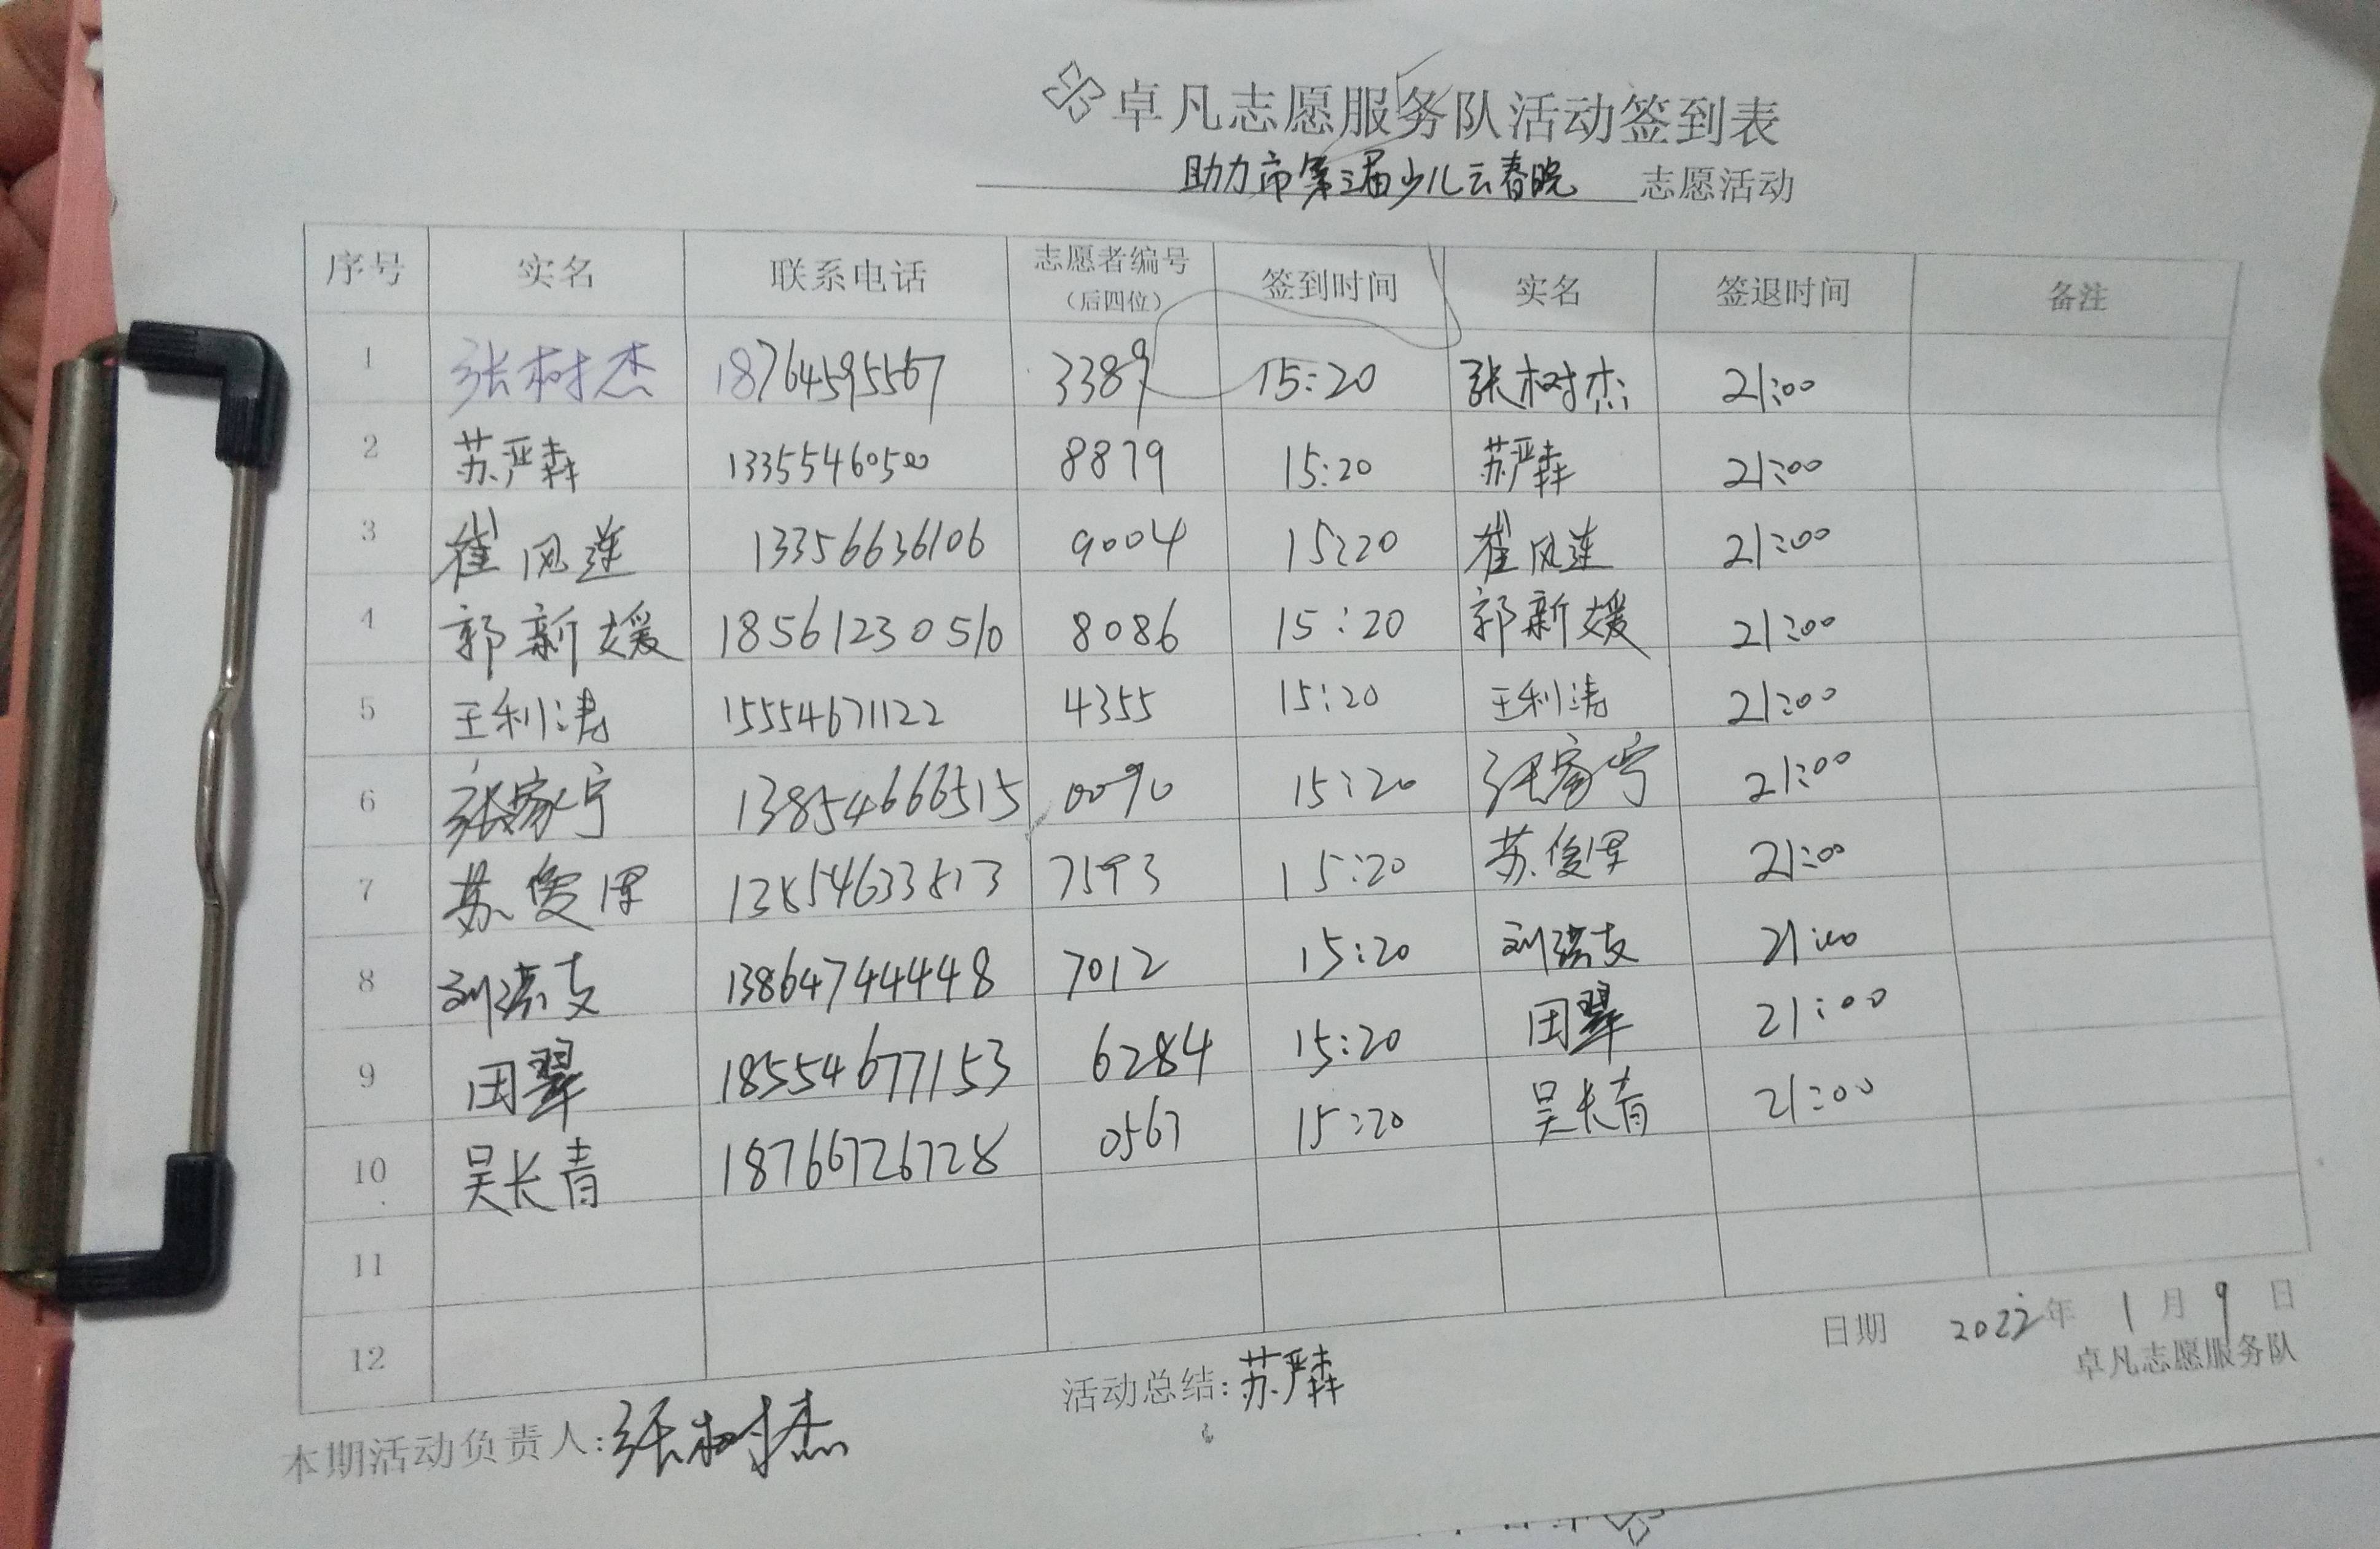 卓凡志愿服务队活动签到表
助力市第三届少儿云春晚 志愿活动
序号 实名 联系电话 志愿者编号（后四位） 签到时间 实名 签退时间 备注
1 张树杰 18764595567 3389 15:20 张树杰 21:00
2 苏严犇 13355460500 8879 15:20 苏严犇 21:00
3 崔风莲 13356636106 9004 15:20 崔风莲 21:00
4 郭新媛 18561230510 8086 15:20 郭新媛 21:00
5 王利涛 15554671122 4355 15:20 王利涛 21:00
6 张家宁 13854666515 0090 15:20 张家宁 21:00
7 苏俊 13854633813 7593 15:20 苏俊 21:00
8 刘洪支 13864744448 7012 15:20 刘洪支 21:00
9 田翠 18554677153 6284 15:20 田翠 21:00
10 吴长青 18766726728 0567 15:20 吴长青 21:00
11
12
日期 2022年 1月 9日
卓凡志愿服务队
本期活动负责人:张树杰 活动总结:苏严犇